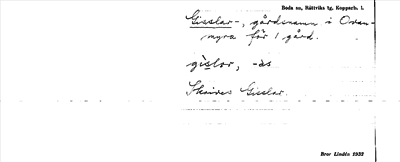 Boda sn, Rättviks tg, Kopparb. l.
Gisslar-, gårdsnamn i Ovan-
myra för 1 gård.
gìslor, -as
Skrives Gisslar.
Bror Lindén 1932